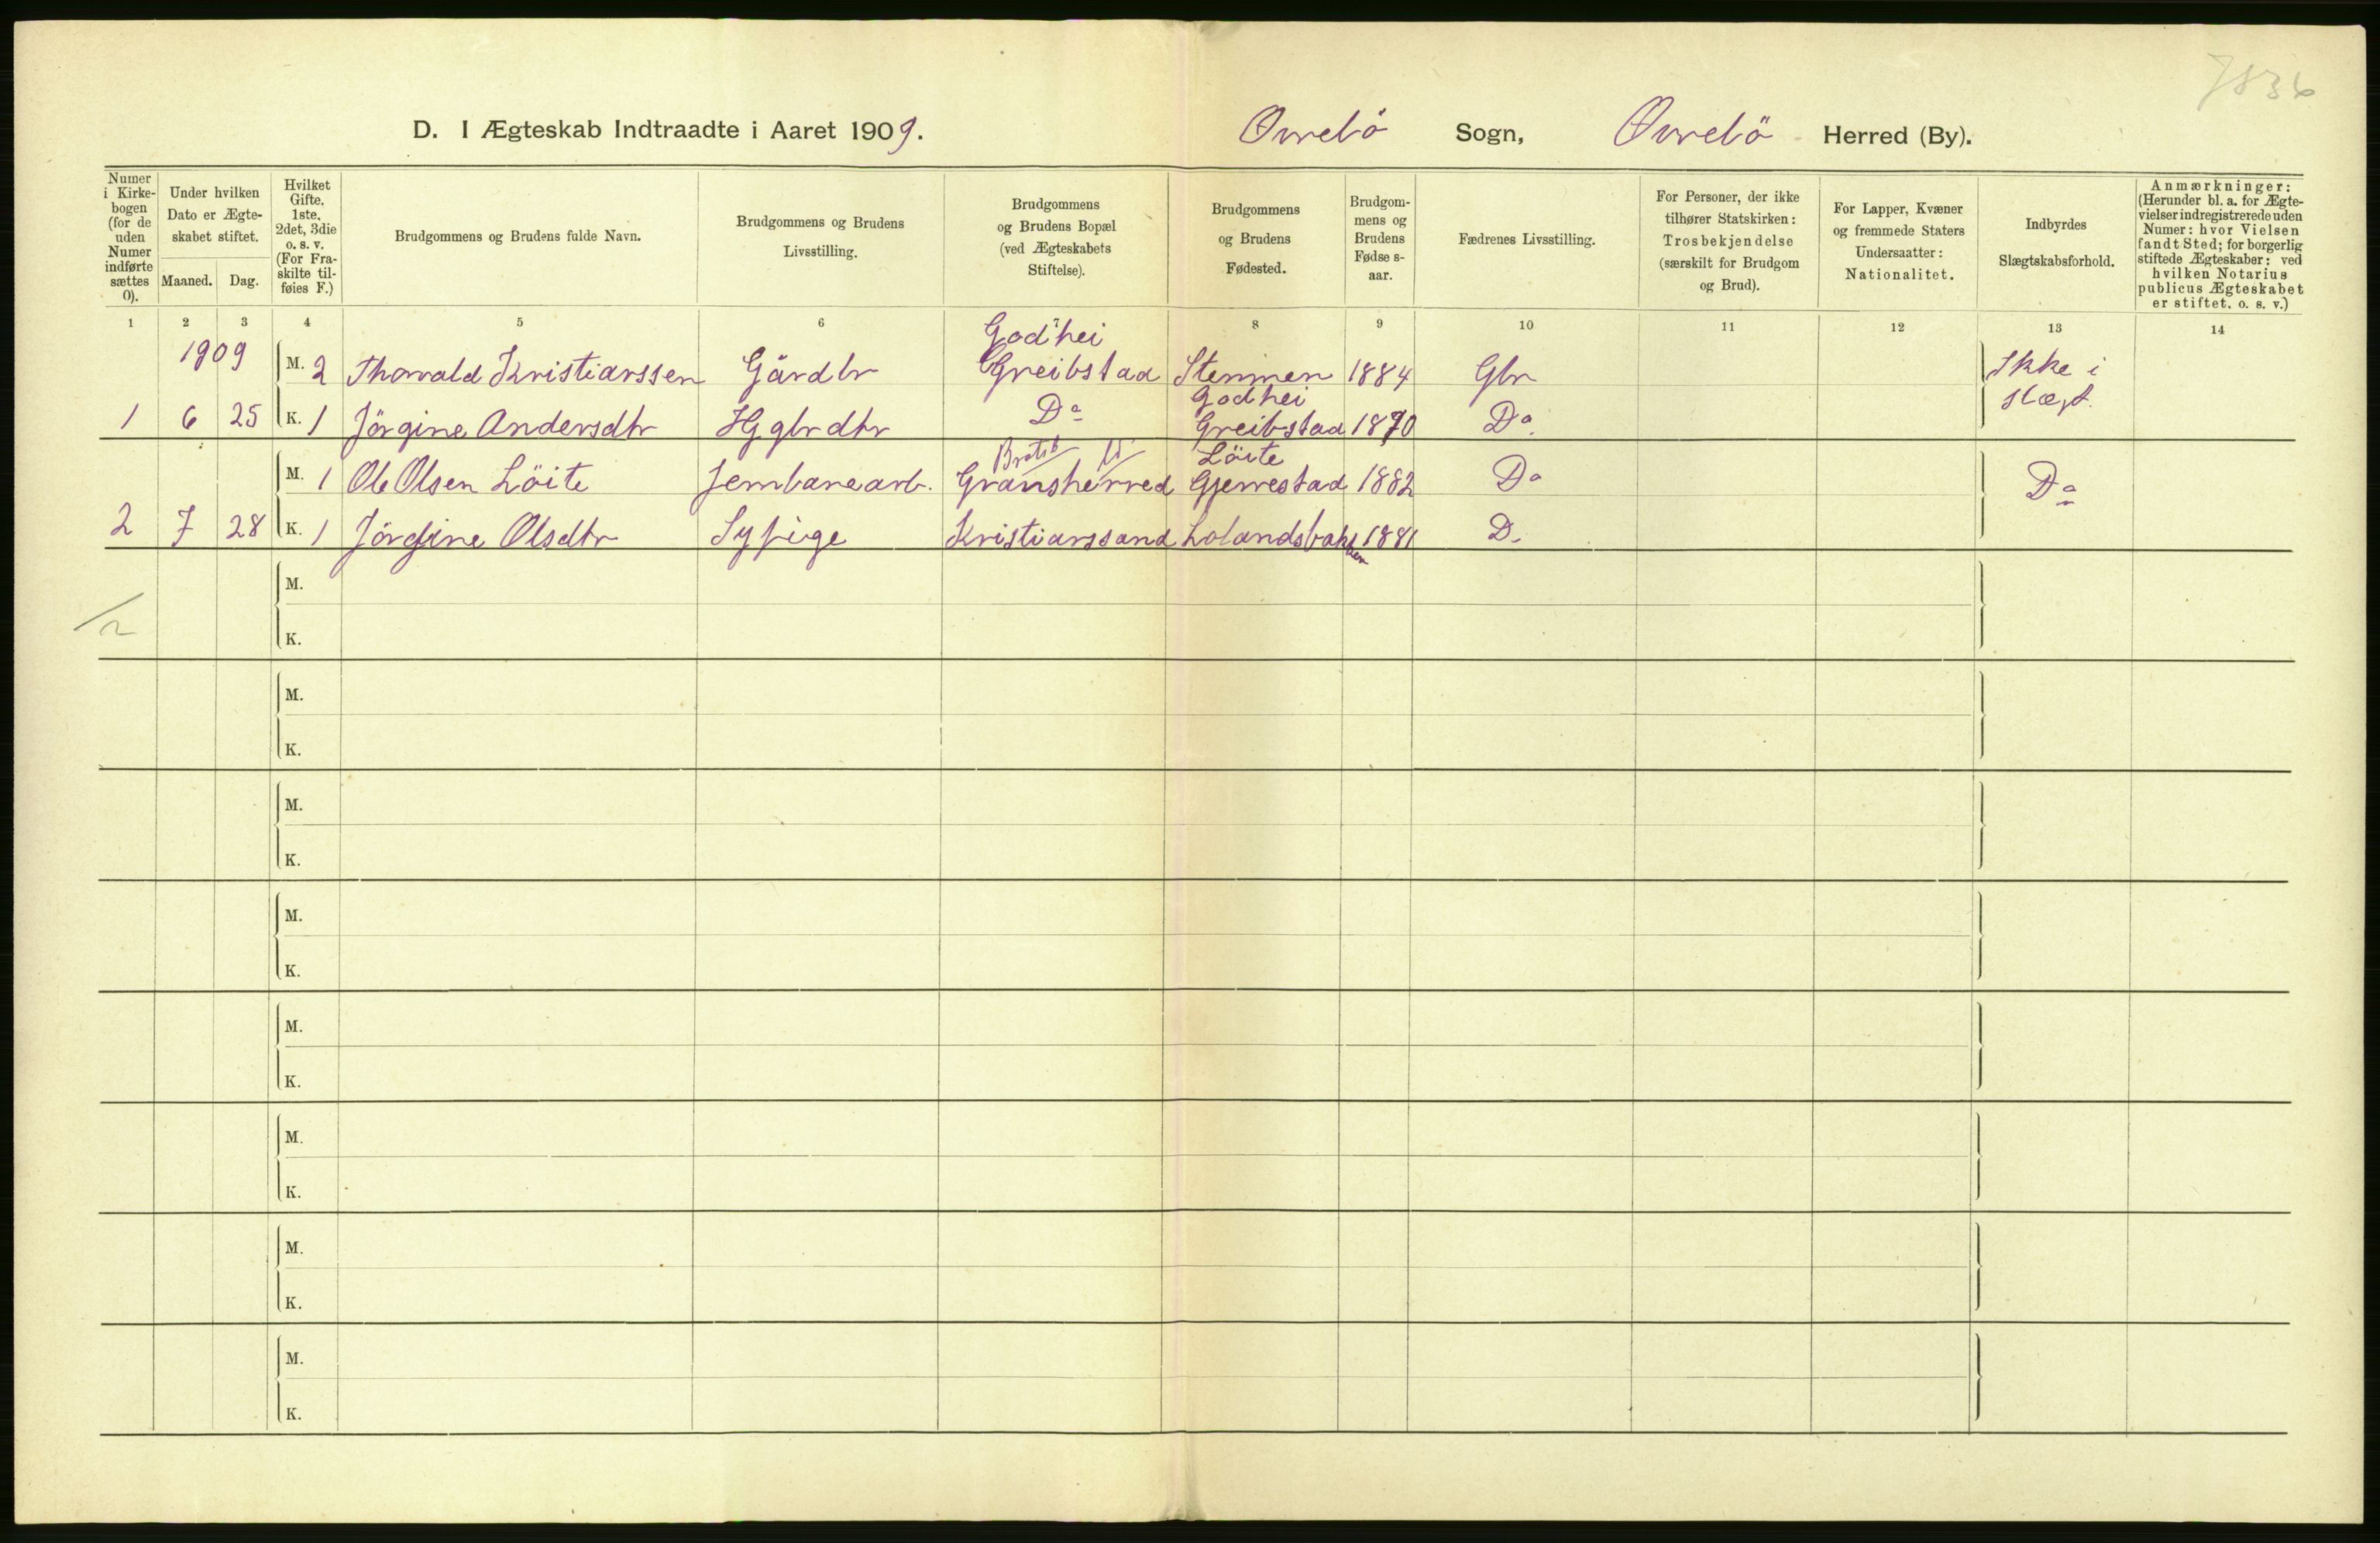 7836
D. I Ægteskab Indtraadte i Aaret 1909. Øvrebö Sogn, Øvrebö Herred (By).
Numer i Kirke-bogen (for de uden Numer indførte sættes 0).
Under hvilken Dato er Ægte-skabet stiftet.
Maaned. Dag.
Hvilket Gifte. 1ste, 2det, 3die o. s. v. (For Fra-skilte til-føies F.)
Brudgommens og Brudens fulde Navn.
Brudgommens og Brudens Livsstilling.
Brudgommens og Brudens Bopæl (ved Ægteskabets Stiftelse).
Brudgommens og Brudens Fødested.
Brudgom-mens og Brudens Fødse s-aar.
Fædrenes Livsstilling.
For Personer, der ikke tilhører Statskirken: Trosbekjendelse (særskilt for Brudgom og Brud).
For Lapper, Kvæner og fremmede Staters Undersaatter: Nationalitet.
Indbyrdes Slægtskabsforhold.
Anmærkninger: (Herunder bl. a. for Ægte-vielser indregistrerede uden Numer: hvor Vielsen fandt Sted; for borgerlig stiftede Ægteskaber: ved hvilken Notarius publicus Ægteskabet er stiftet, o. s. v.)
1 2 3 4 5 6 7 8 9 10 11 12 13 14
Godhei
1909 M. 2 Thorvald Kristianssen Gårdbr Greibstad Stemmen 1884 Gbr Ikke i
Godhei slægt.
1 6 25 K. 1 Jörgine Andersdtr Hggbrdtr Do Greibstad 1870 Do
Løite
M. 1 Ole Olsen Löite Jernbanearb. Gransherred Gjerrestad 1882 Do Do
2 7 28 K. 1 Jörgine Olsdtr Sypige Kristianssand Lolandsbakken 1881 D.
M.
2
K.
M.
K.
M.
K.
M.
K.
M.
K.
M.
K.
M.
K.
M.
K.